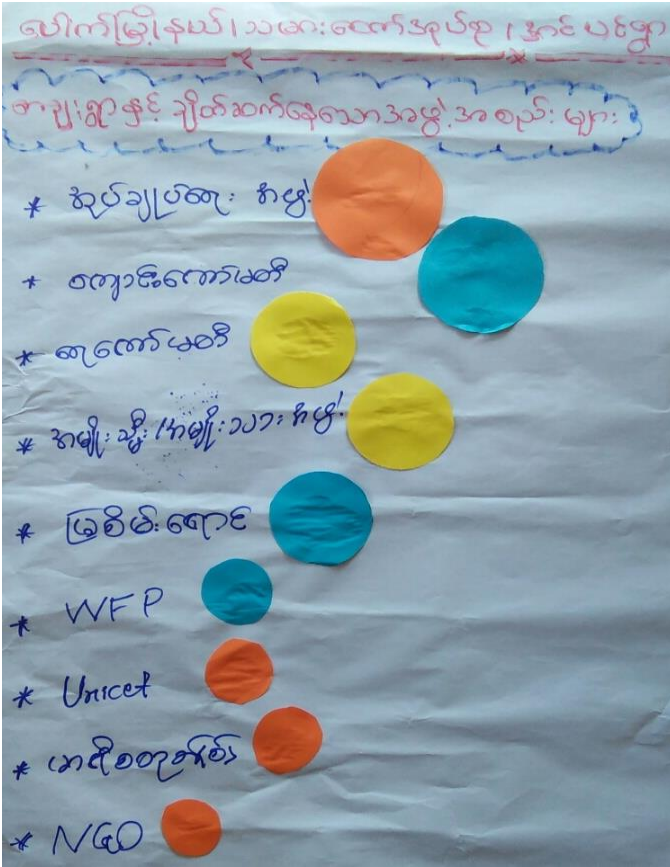 ပေါက်မြို့နယ်၊ သမားတောက်အုပ်စု၊ အောင်ပင်ရွာ
စာချုံးရွာနှင့် ချိတ်ဆက်နေသောအဖွဲ့အစည်းများ
* အုပ်ချုပ်ရေး အဖွဲ့
* ကျောင်းကော်မတီ
* ရေကော်မတီ
* အမျိုးသမီး/အမျိုးသား အဖွဲ့
* မြစိမ်းရောင်
* WFP
* Unicet
*
* NGO